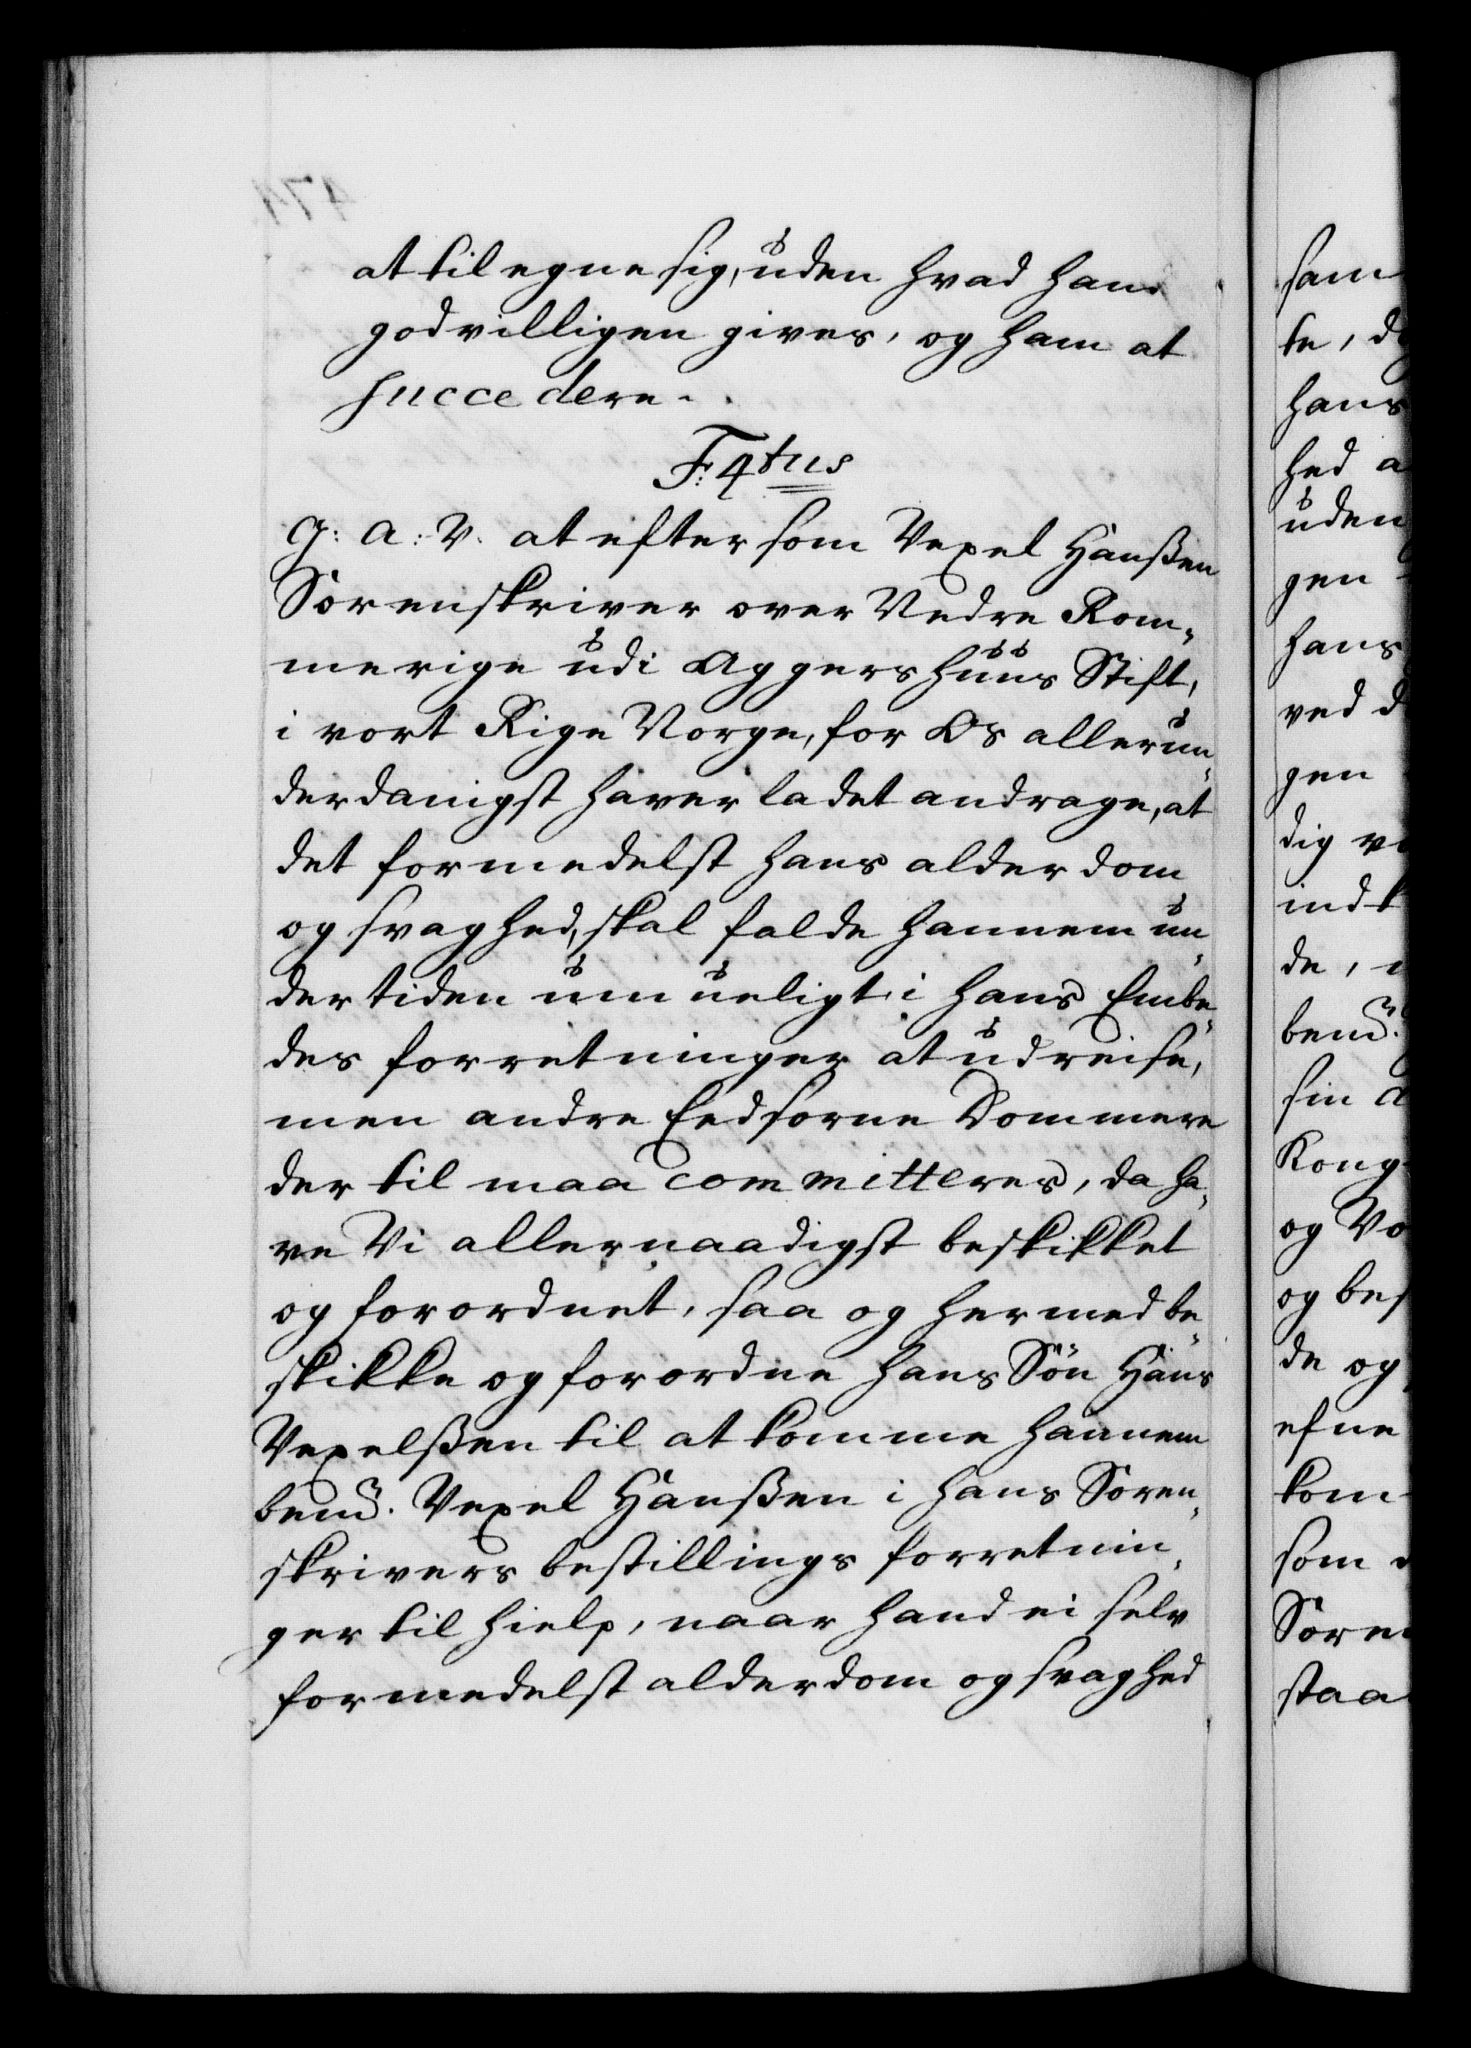 at tilegne sig, uden hvad ham
godvilligen gives, og ham at
succedere.
F: 4tus
G: A: V. at eftersom Vexel Hanßen
Sorenskriver over Nedre Rom-
merige udi Aggershuus Stift,
i vort Rige Norge, for Os allerun-
derdanigst haver ladet andrage, at
det formedelst hans alderdom
og svaghed, skal falde hannem un-
dertiden umueligt i hans Embe-
des forretninger at udreise,
men andre Eedsorne Dommere
der til maa committeres, da ha-
ve Vi allernaadigst beskikket
og forordnet, saa og hermed be-
skikke og forordne hans Søn Hans
Vexelßen til at komme hannem
bemd. Vexel Hanßen i hans Soren-
skrivers bestillings forretnin-
ger til hielp, naar hand ei selv
formedelst alderdom og svaghed
sam
te, d
hans
hed a
uden
gen
hans
ved d
gen
dig v
indk
de,
bemd.
sin A
Kong
og Vo
og bes
de og
efne
kom
som
Soren
staa